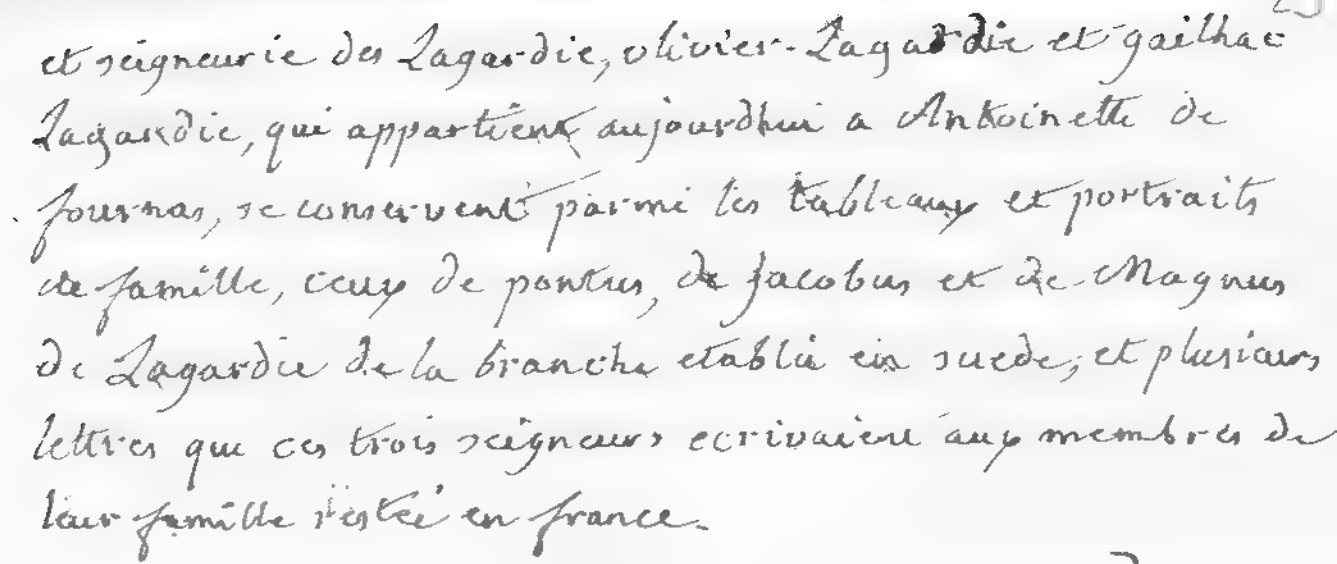 et seigneurie des Lagardie, olivier-Lagardie et gailhac
Lagardie, qui appartient aujourdhui a Antoinette de
fournas, se conservent parmi les tableaux et portraits
de famille, ceux de pontus, de Jacobus et de Magnus
de Lagardie de la branche etablie en suede, et plusieurs
lettres que ces trois seigneurs ecrivaient aux membres de
leur famille restée en france.